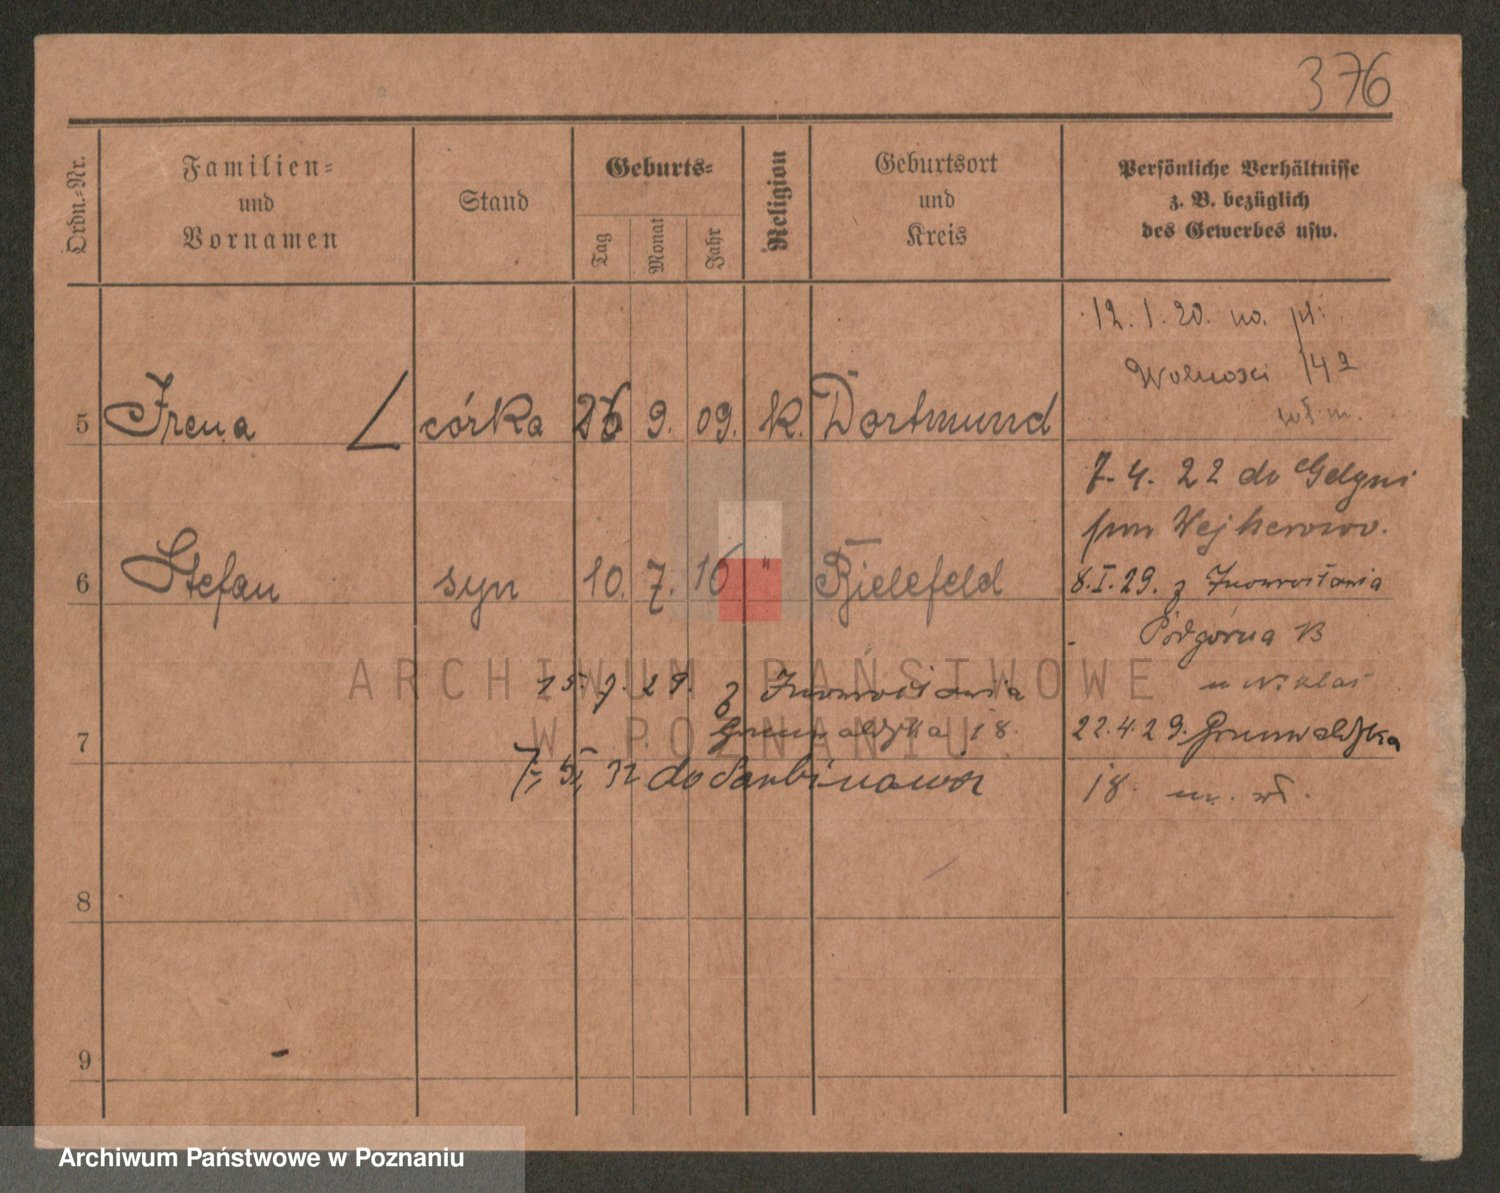 376
Ordn.-Nr.
Familien-
und
Vornamen
Stand
Geburts-
Tag
Monat
Jahr
Religion
Geburtsort
und
Kreis
Persönliche Verhältnisse
z. B. bezüglich
des Gewerbes usw.
12. 1. 20. na. pl:
Wolności 14a
wł. m.
5 Irena córka 26 9. 09. k. Dortmund
7. 4. 22 do Gdyni
pow Wejherowo.
6 Stefan syn 10. 7. 16 " Bielefeld
8.I.29. z Inowrocławia
Podgórna 13
u Niklas
15. 9. 29. z Inowrocławia
Grunwaldzka 18.
7
22.4.29. Grunwaldzka
18. m. wł.
7, 5, 32 do Sarbinowa
8
9
ARCHIWUM PAŃSTWOWE
W POZNANIU
Archiwum Państwowe w Poznaniu